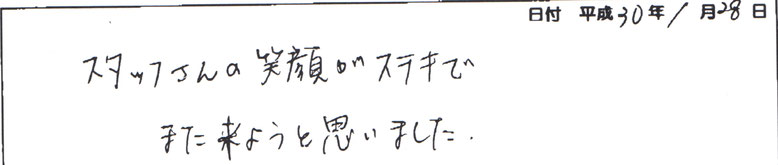 日付 平成30年1月28日
スタッフさんの笑顔がステキで
また来ようと思いました.